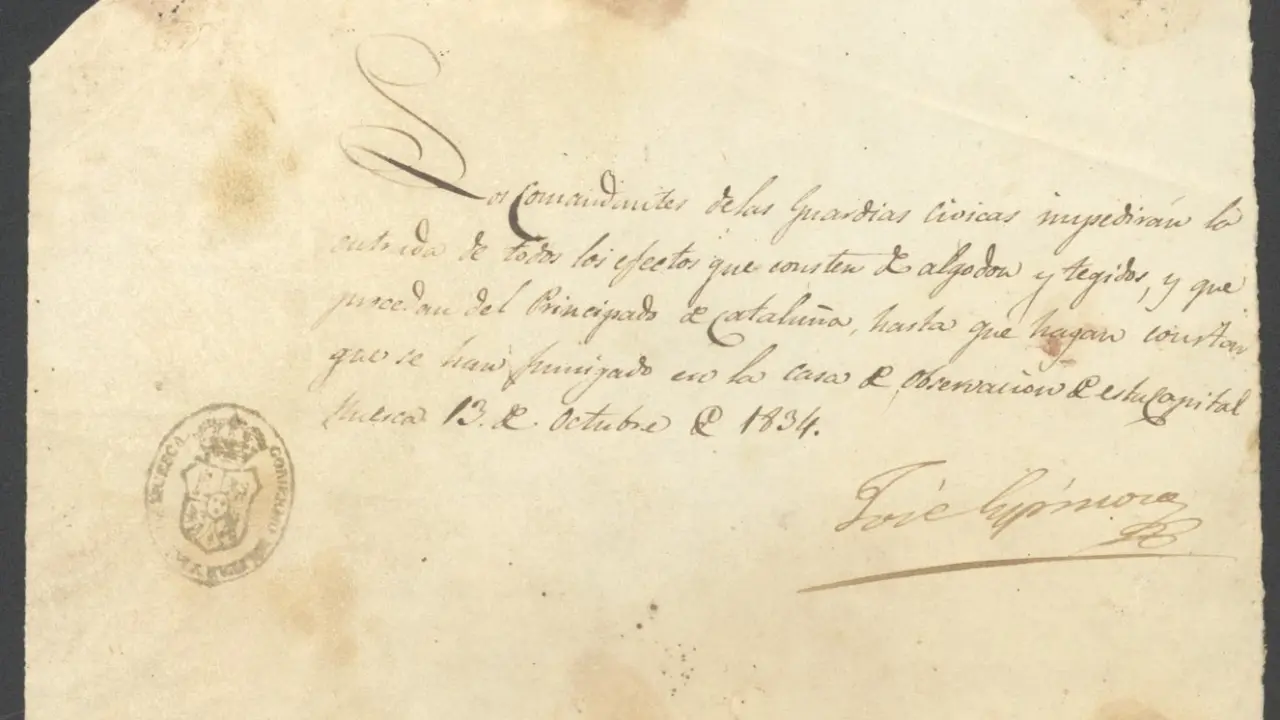 Los Comandantes delas Guardias Civicas impedirán la
entrada de todos los efectos que consten de algodon y tegidos, y que
procedan del Principado de Cataluña, hasta que hagan constar
que se han fumigado en la casa de Observacion de esta Capital
Huesca 13. de Octubre de 1834.
José Espinosa
HUESCA GOBIERNO